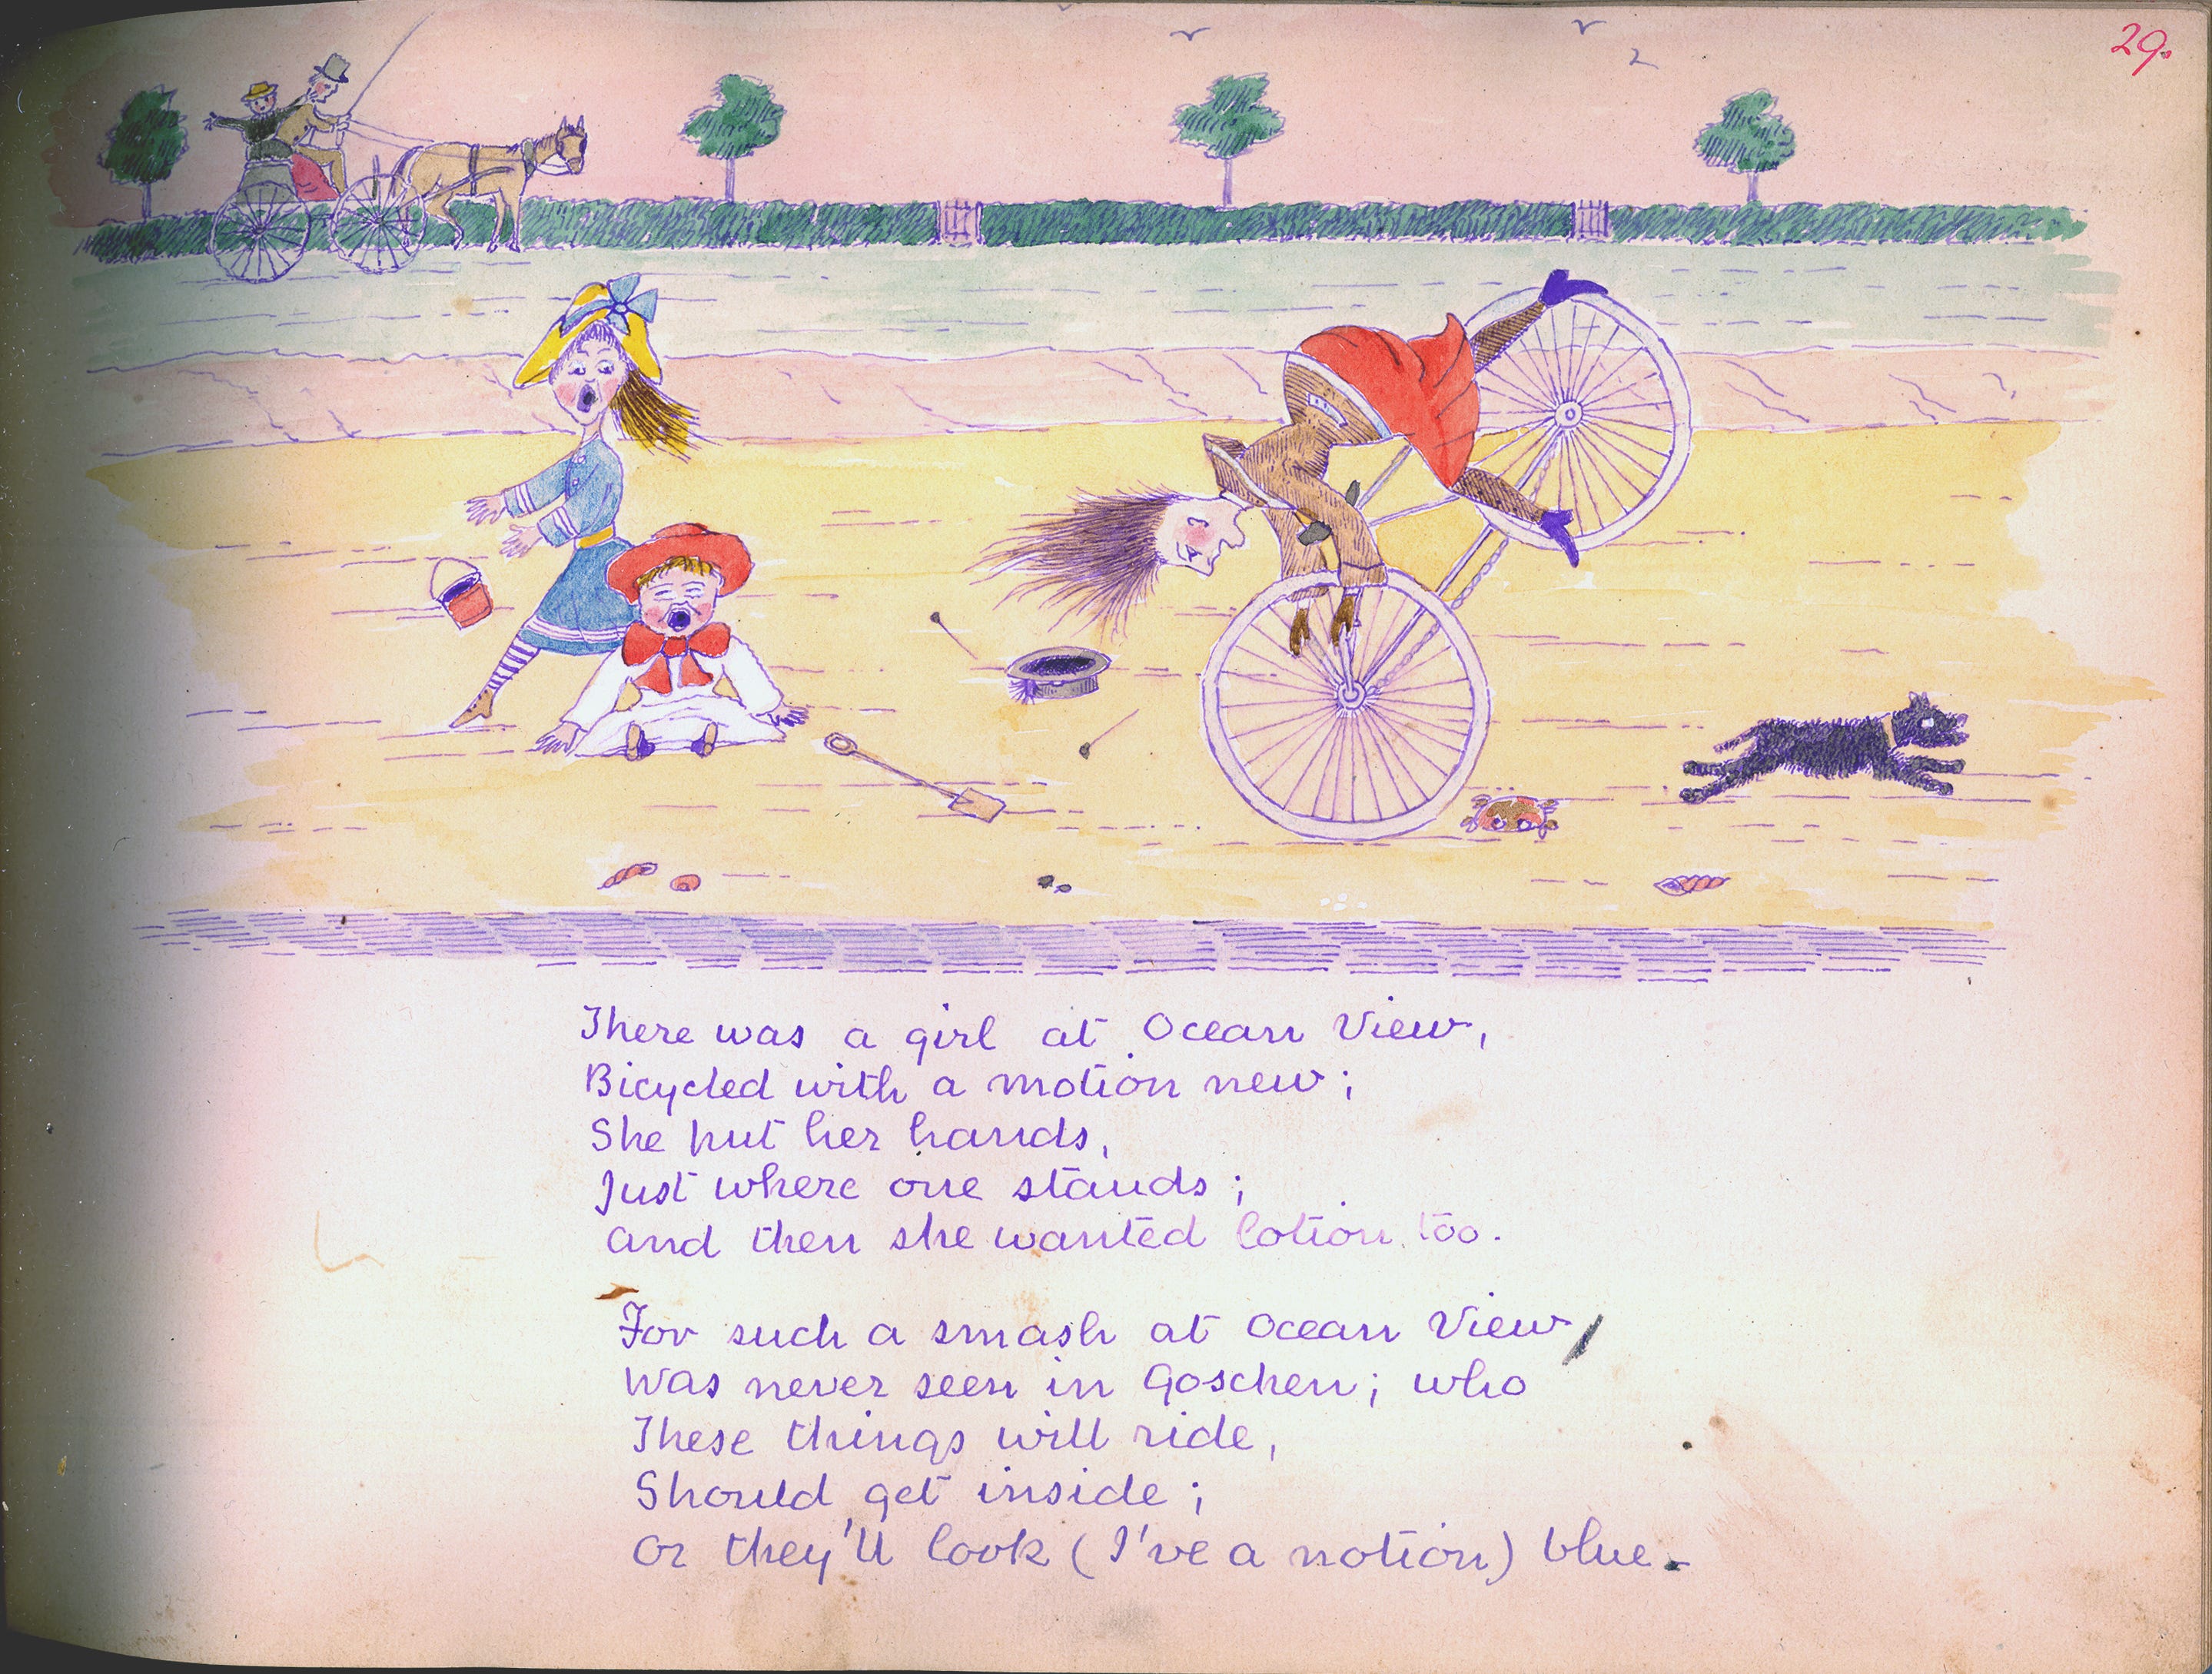 29.
There was a girl at Ocean View,
Bicycled with a motion new;
She put her hands,
Just where one stands;
And then she wanted lotion too.
For such a smash at Ocean View,
Was never seen in Goschen; who
These things will ride,
Should get inside;
Or they'll look (I've a notion) blue.